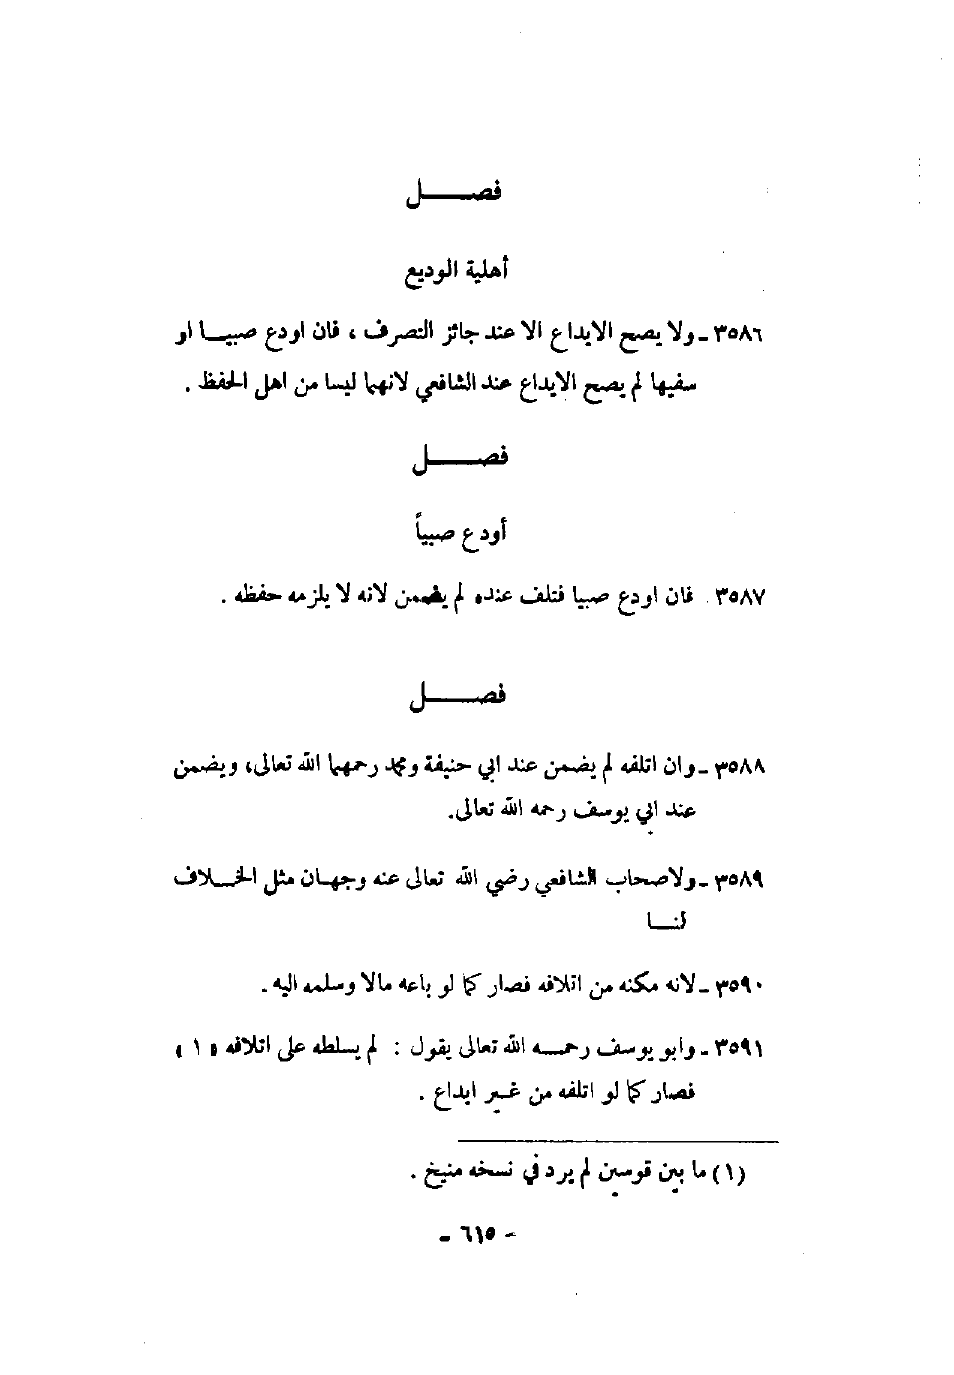 فصـــــل
أهلية الوديع
٣٥٨٦ - ولا يصح الايداع الا عند جائز التصرف ، فان اودع صبيـا او
سفيها لم يصح الايداع عند الشافعي لانهما ليسا من اهل الحفظ .
فصـــــل
أودع صبياً
٣٥٨٧ . فان اودع صبيا فتلف عنده لم يضمن لانه لا يلزمه حفظه .
فصـــــل
٣٥٨٨ - وان اتلفه لم يضمن عند ابي حنيفة ومحمد رحمهما الله تعالى، ويضمن
عند ابي يوسف رحمه الله تعالى.
٣٥٨٩ - ولاصحاب الشافعي رضي الله تعالى عنه وجهـان مثل الخـلاف
لنـا
٣٥٩٠ - لانه مكنه من اتلافه فصار كما لو باعه مالا وسلمه اليه .
٣٥٩١ - وابو يوسف رحمـه الله تعالى يقول : لم يسلطه على اتلافه « ١ »
فصار كما لو اتلفه من غـير ايداع .
(١) ما بين قوسين لم يرد في نسخه منيخ .
- ٦١٥ -